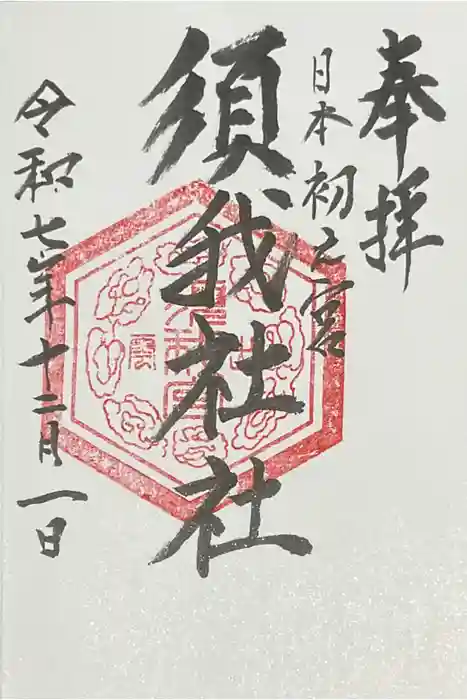 奉拝
日本初之宮
須我社社
令和七年十二月一日
雲